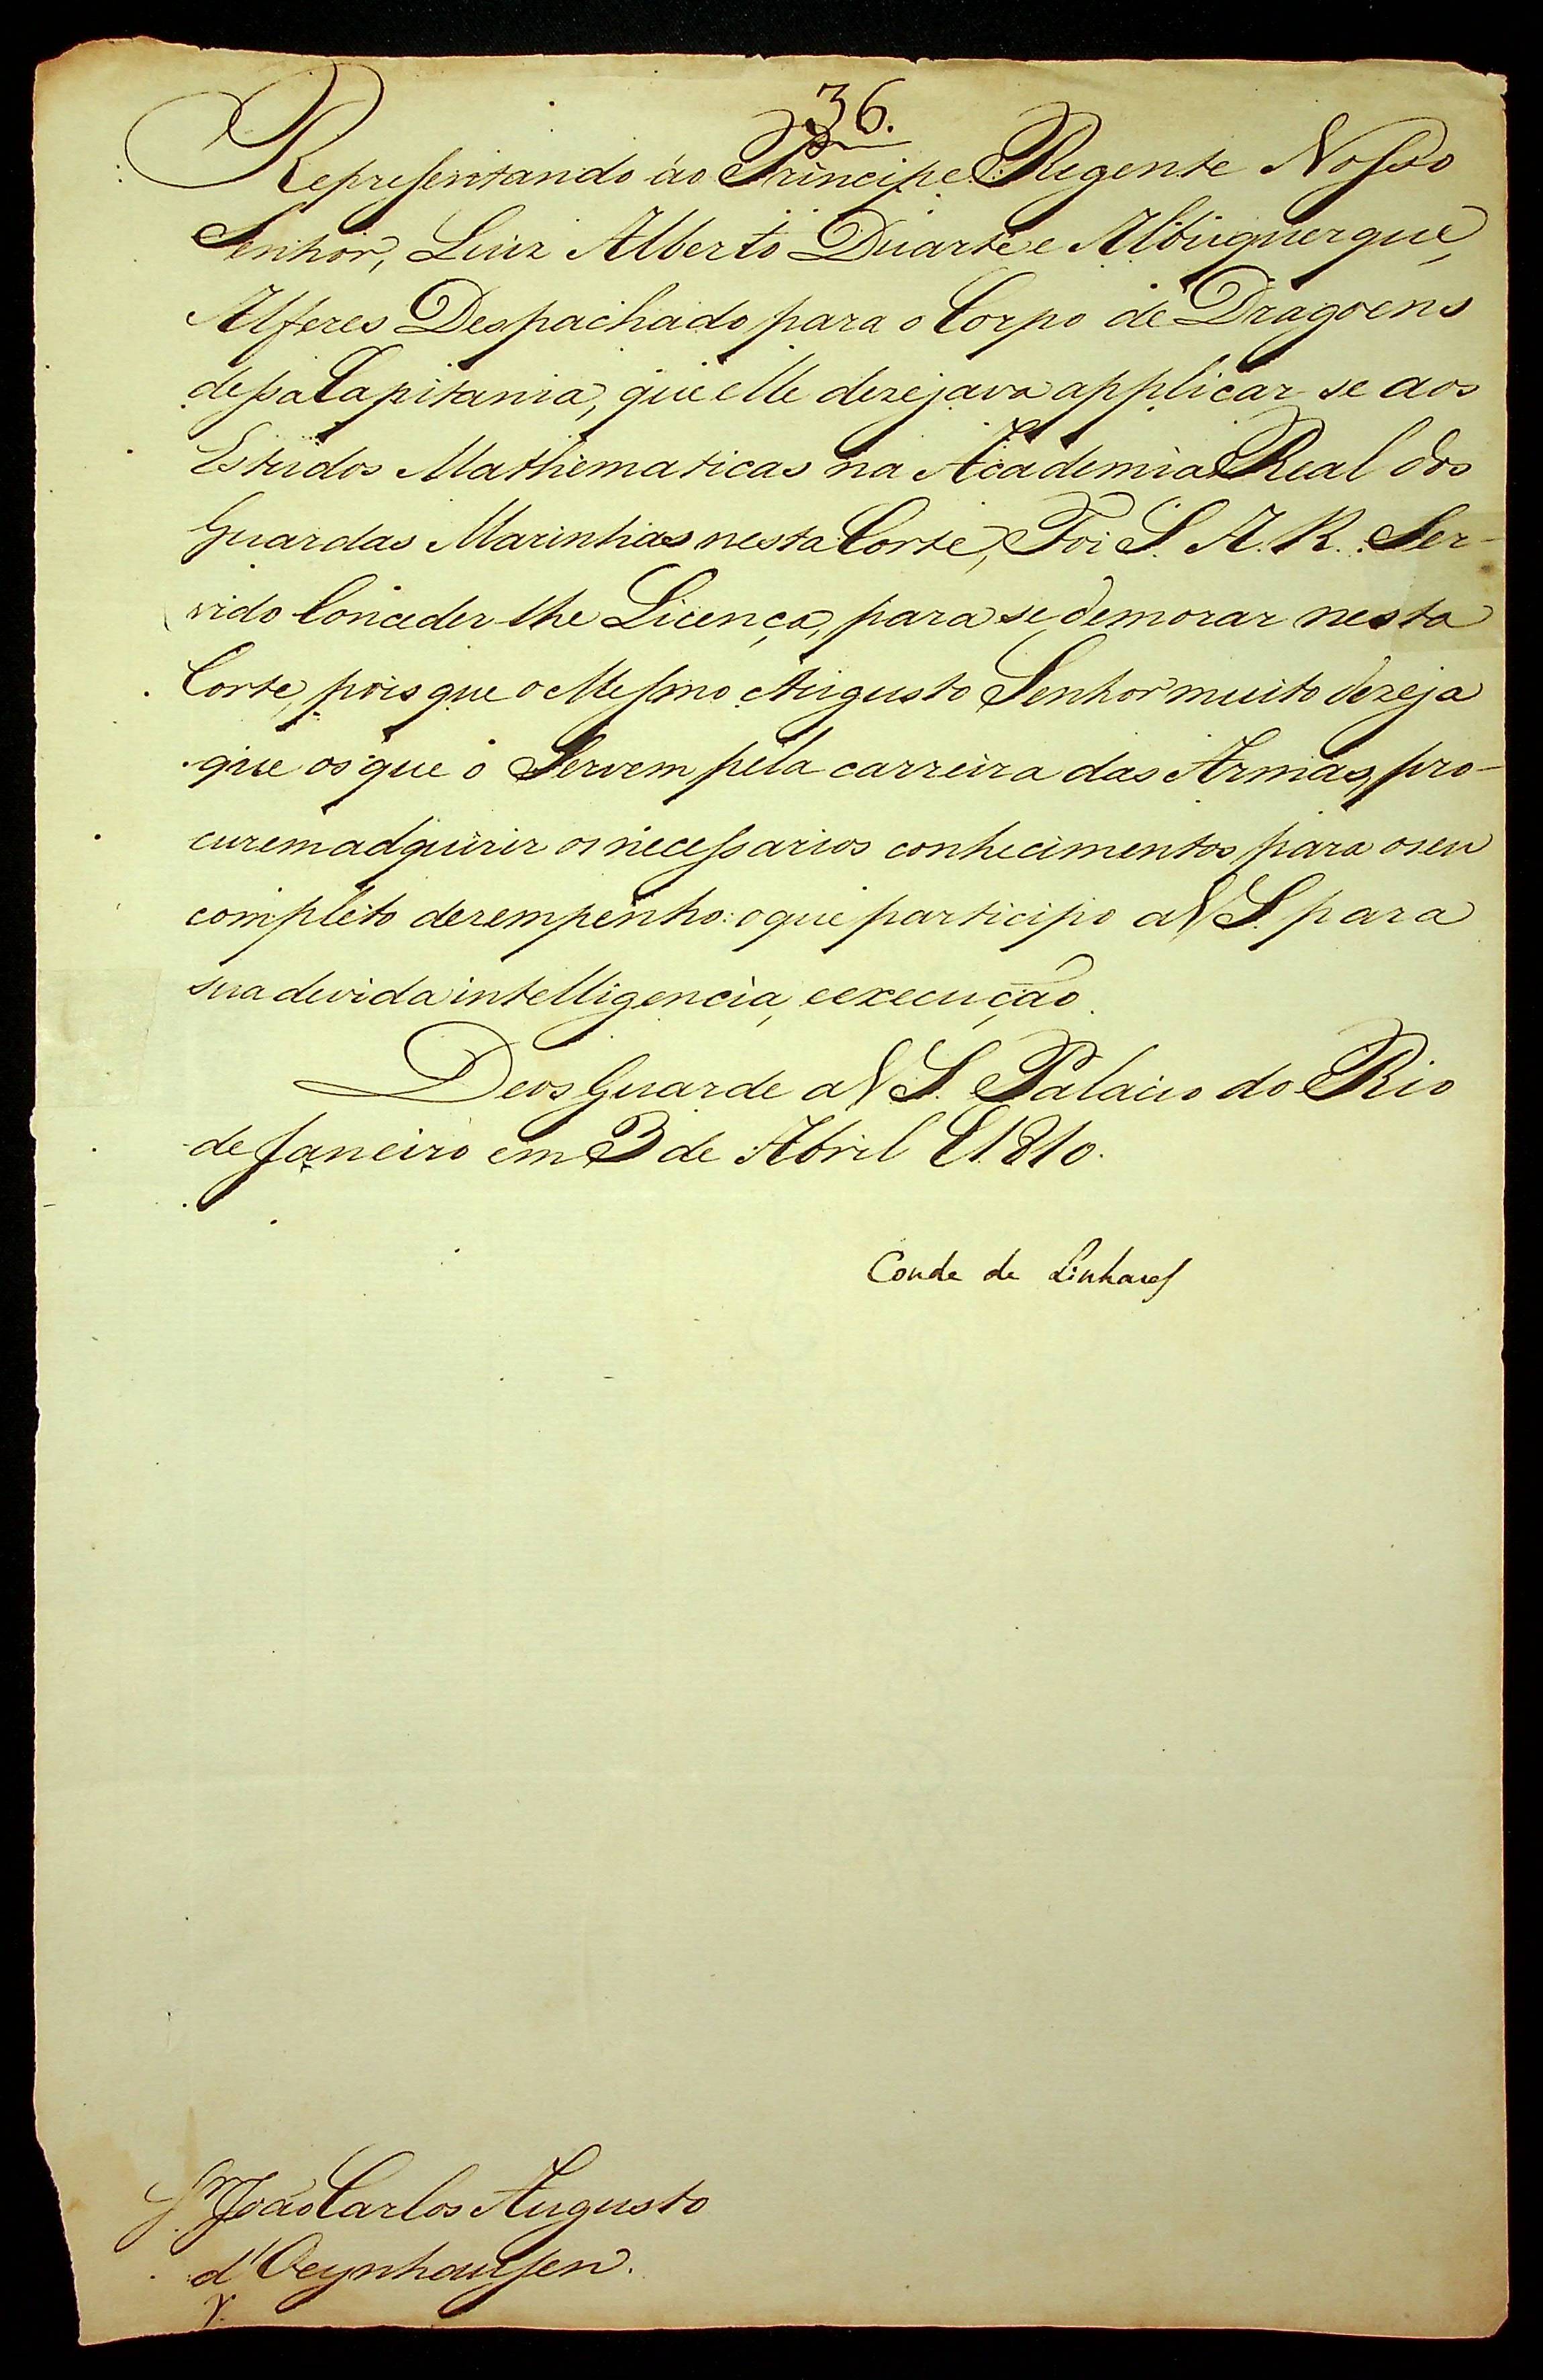 36.
Representando áo Principe Regente Nosso
Senhor, Luiz Alberto Duarte e Albuquerque,
Alferes Despachado para o Corpo de Dragoens
dessa Capitania, que elle dezejava applicar-se aos
Estudos Mathematicas na Academia Real dos
Guardas Marinhas nesta Corte, Foi S. A. R. Ser-
vido Conceder-lhe Licença, para se demorar nesta
Corte, pois que o Mesmo Augusto Senhor muito dezeja
que os que o Servem pela carreira das Armas, pro-
curem adquirir os necessarios conhecimentos para o seu
completo dezempenho: o que participo a V S. para
sua devida intelligencia, e execução.
Deos Guarde a V S. Palacio do Rio
de Janeiro em 3 de Abril 1810.
Conde de Linhares
Snr. João Carlos Augusto
d'Oeynhausen.